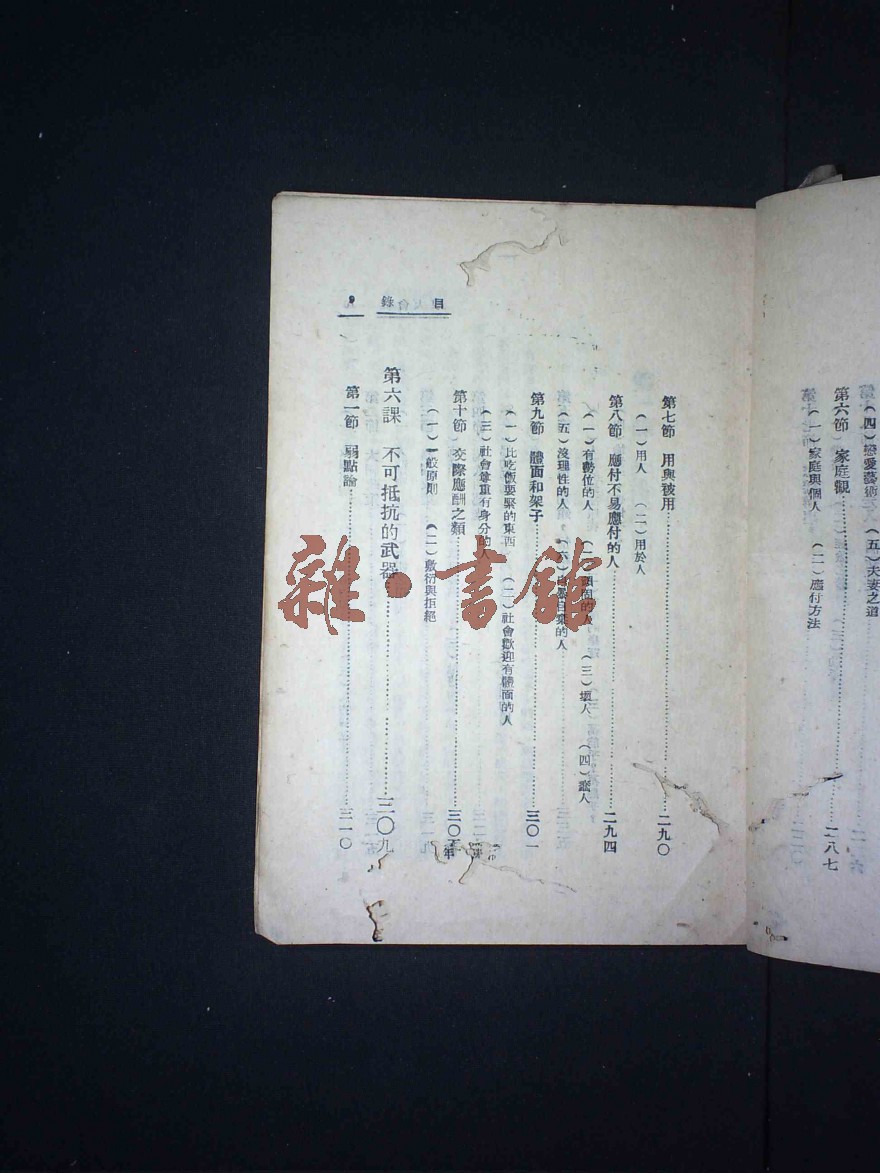 （四）戀愛藝術　（五）夫妻之道
第六節　家庭觀……二八七
（一）家庭與個人　（二）應付方法
目錄　9
第七節　用與被用……二九〇
（一）用人　（二）用於人
第八節　應付不易應付的人……二九四
（一）有勢位的人　（二）頑固的人　（三）壞人　（四）惡人
（五）沒理性的人　（六）自暴自棄的人
第九節　體面和架子……三〇一
（一）比吃飯要緊的東西　（二）社會歡迎有體面的人
（三）社會尊重有身分的人
第十節　交際應酬之類……三〇
（一）一般原則　（二）敷衍與拒絕
第六課　不可抵抗的武器……三〇九
第一節　弱點論……三一〇
雜·書館